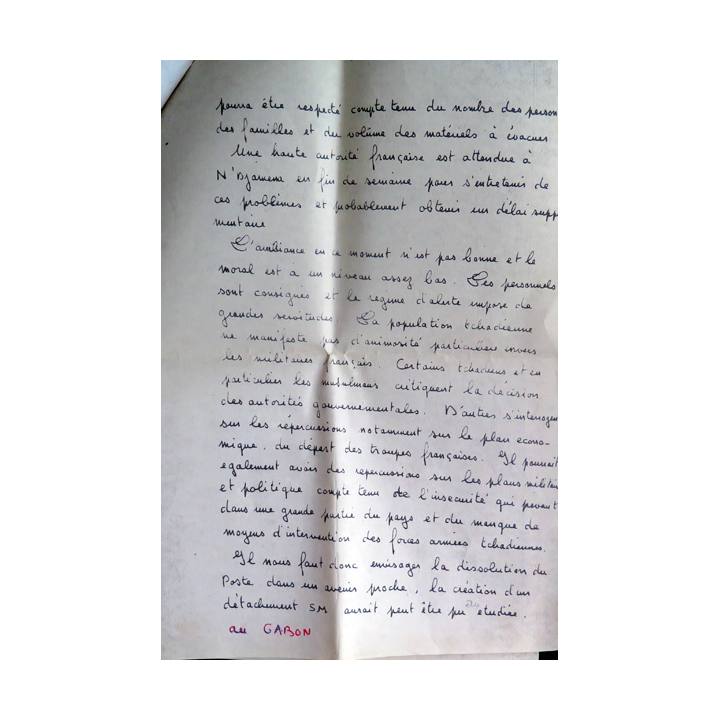 pourra être respecté compte tenu du nombre des person
des familles et du volume des matériels à évacuer
Une haute autorité française est attendue à
N'Djamena en fin de semaine pour s'entretenir de
ces problèmes et probablement obtenir un délai supp
mentaire
L'ambiance en ce moment n'est pas bonne et le
moral est à un niveau assez bas. Les personnels
sont consignés et le regime d'alerte impose de
grandes servitudes. La population tchadienne
ne manifeste pas d'animosité particulière envers
les militaires français. Certains tchadiens et en
particulier les musulmans critiquent la décision
des autorités gouvernementales. D'autres s'interrogent
sur les répercussions notamment sur le plan econo-
mique, du départ des troupes françaises. Il pourrait
egalement avoir des repercussions sur les plans militair
et politique compte tenu de l'insecurité qui prevaut
dans une grande partie du pays et du manque de
moyens d'intervention des forces armées tchadiennes.
Il nous faut donc envisager la dissolution du
Poste dans un avenir proche, la création d'un
détachement SM aurait peut être pu etudiée.
au GABON